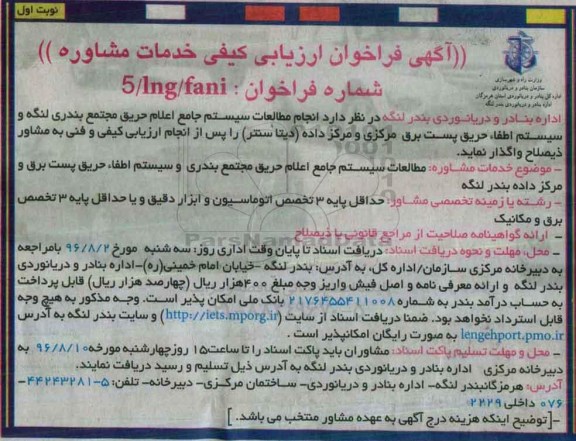 نوبت اول
وزارت راه و شهرسازی
سازمان بنادر و دریانوردی
اداره کل بنادر و دریانوردی استان هرمزگان
اداره بنادر و دریانوردی بندر لنگه
((آگهی فراخوان ارزیابی کیفی خدمات مشاوره ))
شماره فراخوان : 5/lng/fani
اداره بنادر و دریانوردی بندر لنگه در نظر دارد انجام مطالعات سیستم جامع اعلام حریق مجتمع بندری لنگه و
سیستم اطفاء حریق پست برق مرکزی و مرکز داده (دیتا سنتر) را پس از انجام ارزیابی کیفی و فنی به مشاور
ذیصلاح واگذار نماید.
- موضوع خدمات مشاوره: مطالعات سیستم جامع اعلام حریق مجتمع بندری و سیستم اطفاء حریق پست برق و
مرکز داده بندر لنگه
- رشته یا زمینه تخصصی مشاور: حداقل پایه ۳ تخصص اتوماسیون و ابزار دقیق و یا حداقل پایه ۳ تخصص
برق و مکانیک
- ارائه گواهینامه صلاحیت از مراجع قانونی یا ذیصلاح
- محل، مهلت و نحوه دریافت اسناد: دریافت اسناد تا پایان وقت اداری روز: سه شنبه مورخ ۹۶/۸/۲ بامراجعه
به دبیرخانه مرکزی سازمان/اداره کل، به آدرس: بندر لنگه -خیابان امام خمینی(ره)-اداره بنادر و دریانوردی
بندر لنگه و ارائه معرفی نامه و اصل فیش واریز وجه مبلغ ۴۰۰هزار ریال (چهارصد هزار ریال) قابل پرداخت
به حساب درآمد بندر به شماره ۲۱۷۶۴۵۵۴۱۱۰۰۸ بانک ملی امکان پذیر است. وجه مذکور به هیچ وجه
قابل استرداد نخواهد بود. ضمنا دریافت اسناد از سایت (http://iets.mporg.ir) و سایت بندر لنگه به آدرس
lengehport.pmo.ir به صورت رایگان امکانپذیر است .
- محل و مهلت تسلیم پاکت اسناد: مشاوران باید پاکت اسناد را تا ساعت۱۵ روزچهارشنبه مورخه ۹۶/۸/۱۰ به
دبیرخانه مرکزی اداره بنادر و دریانوردی بندر لنگه به آدرس ذیل تسلیم و رسید دریافت نمایند.
آدرس: هرمزگانبندر لنگه- اداره بنادر و دریانوردی- ساختمان مرکزی- دبیرخانه- تلفن: ۵-۴۴۲۴۳۲۸۱-
۰۷۶ داخلی ۲۲۲۹
-[توضیح اینکه هزینه درج آگهی به عهده مشاور منتخب می باشد. ]